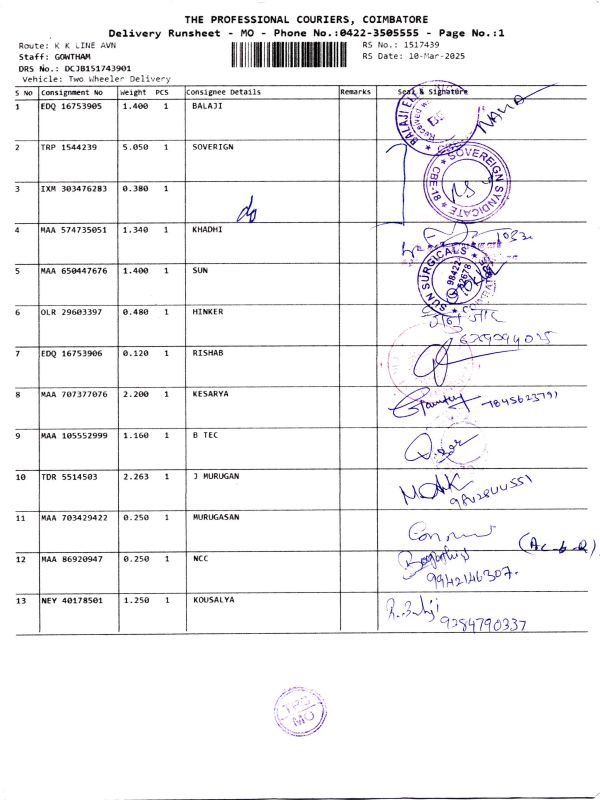 THE PROFESSIONAL COURIERS, COIMBATORE
Delivery Runsheet - MO - Phone No.:0422-3505555 - Page No.:1
Route: K K LINE AVN
RS No.: 1517439
Staff: GOWTHAM
RS Date: 10-Mar-2025
DRS No.: DCJB151743901
Vehicle: Two Wheeler Delivery
S No Consignment No Weight PCS Consignee Details Remarks Seal & Signature
1 EDQ 16753905 1.400 1 BALAJI
2 TRP 1544239 5.050 1 SOVERIGN SOVEREIGN SYNDICATE CBE-18
3 IXM 303476283 0.380 1 do
4 MAA 574735051 1.340 1 KHADHI
5 MAA 650447676 1.400 1 SUN SUN SURGICALS
6 OLR 29603397 0.480 1 HINKER
7 EDQ 16753906 0.120 1 RISHAB
8 MAA 707377076 2.200 1 KESARYA 7845623791
9 MAA 105552999 1.160 1 B TEC
10 TDR 5514503 2.263 1 J MURUGAN
11 MAA 703429422 0.250 1 MURUGASAN
12 MAA 86920947 0.250 1 NCC 9942146307.
13 NEY 40178501 1.250 1 KOUSALYA 9384790337
TPC
MO